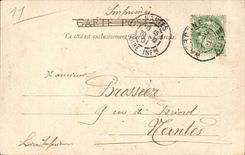 Imprimés
CARTE POSTALE
Ce côté est exclusivement
NANTES
LOIRE-INFRE
Monsieur
Bressier
9 rue de Briord
Nantes
Loire Inférieure